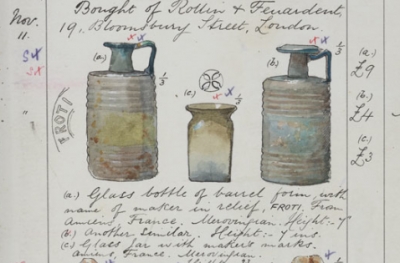 Bought of Rollin & Feuardent,
19, Bloomsbury Street, London.
Nov.
11.
(a.)
1/3
FROTI
(b)
1/3
(c)
1/3
(a.)
£9
(b.)
£4
(c.)
£3
(a.) Glass bottle of barrel form, with
name of maker in relief, FROTI. From
Amiens, France. Merovingian. Height:- 7
(b.) Another similar. Height:- 7 ins.
(c) Glass Jar with maker's marks.
Amiens, France. Merovingian.